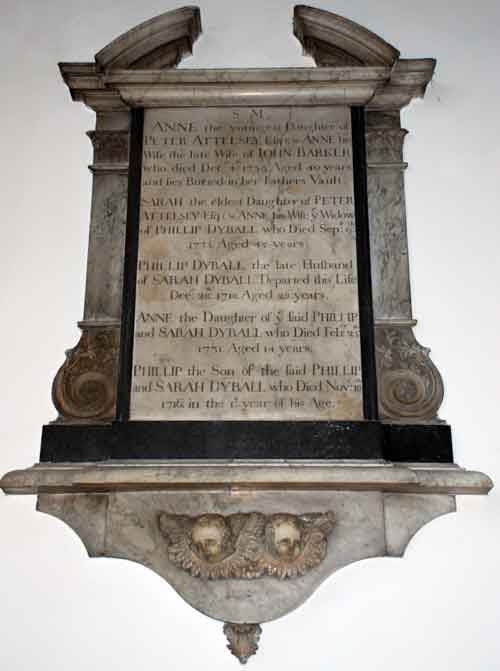 S. M.
ANNE the youngest Daughter of
PETER ATTELSEY Esqr. & ANNE his
Wife the late Wife of JOHN BARKER
who died Decr. Aged 40 years
and lies Buried in her Fathers Vault.
SARAH the eldest Daughter of PETER
ATTELSEY Esqr. & ANNE his Wife & Widow
of PHILLIP DYBALL who Died Septr. 9th
Aged 45 years.
PHILLIP DYBALL the late Husband
of SARAH DYBALL Departed this Life
Decr. Aged years.
ANNE the Daughter of ye said PHILLIP
and SARAH DYBALL who Died Febry.
1731. Aged 14 years.
PHILLIP the Son of the said PHILLIP
and SARAH DYBALL who Died Novr.
in the 1st year of his Age.